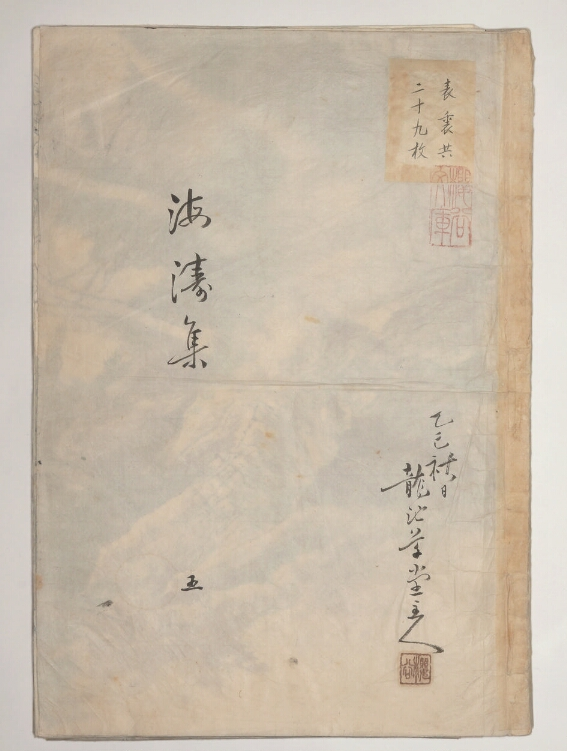 表裏共
二十九枚
乙巳禊日
龍池草堂主人
海濤集
五